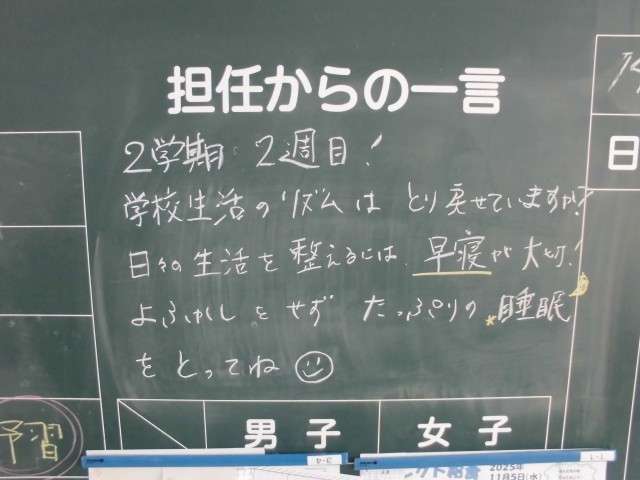 担任からの一言
2学期 2週目!
学校生活のリズムは とり戻せていますか?
日々の生活を整えるには、早寝が大切!
よふかしをせず たっぷりの 睡眠
をとってね
日
予習
男子 女子
2025年
11月5日(水)